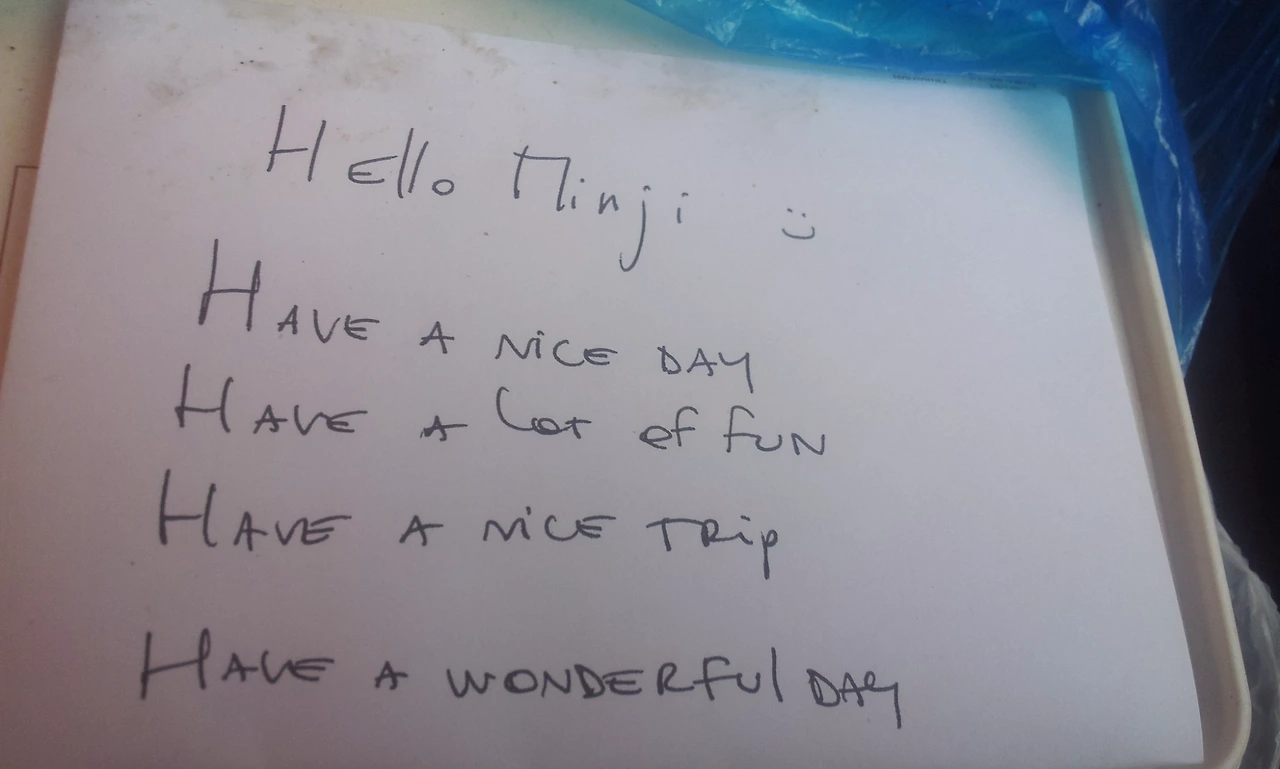 Hello Minji :)
HAVE A NiCE DAY
HAVE A lot of fUN
HAVE A NiCE TRip
HAVE A WONDERfUl DAY